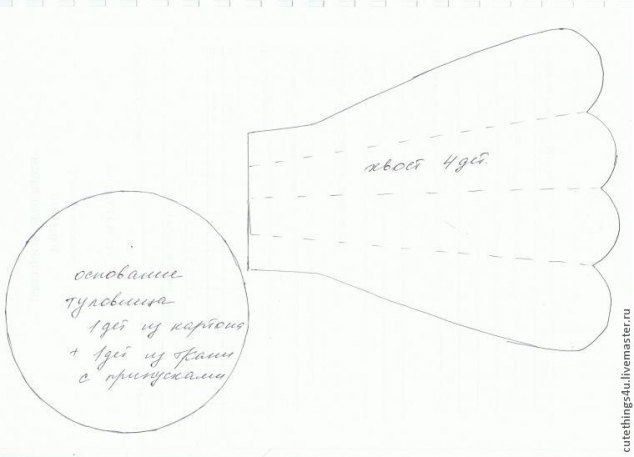 хвост 4 дет.
основание
туловища
1 дет из картона
+ 1 дет из ткани
с припусками
cutethings4u.livemaster.ru